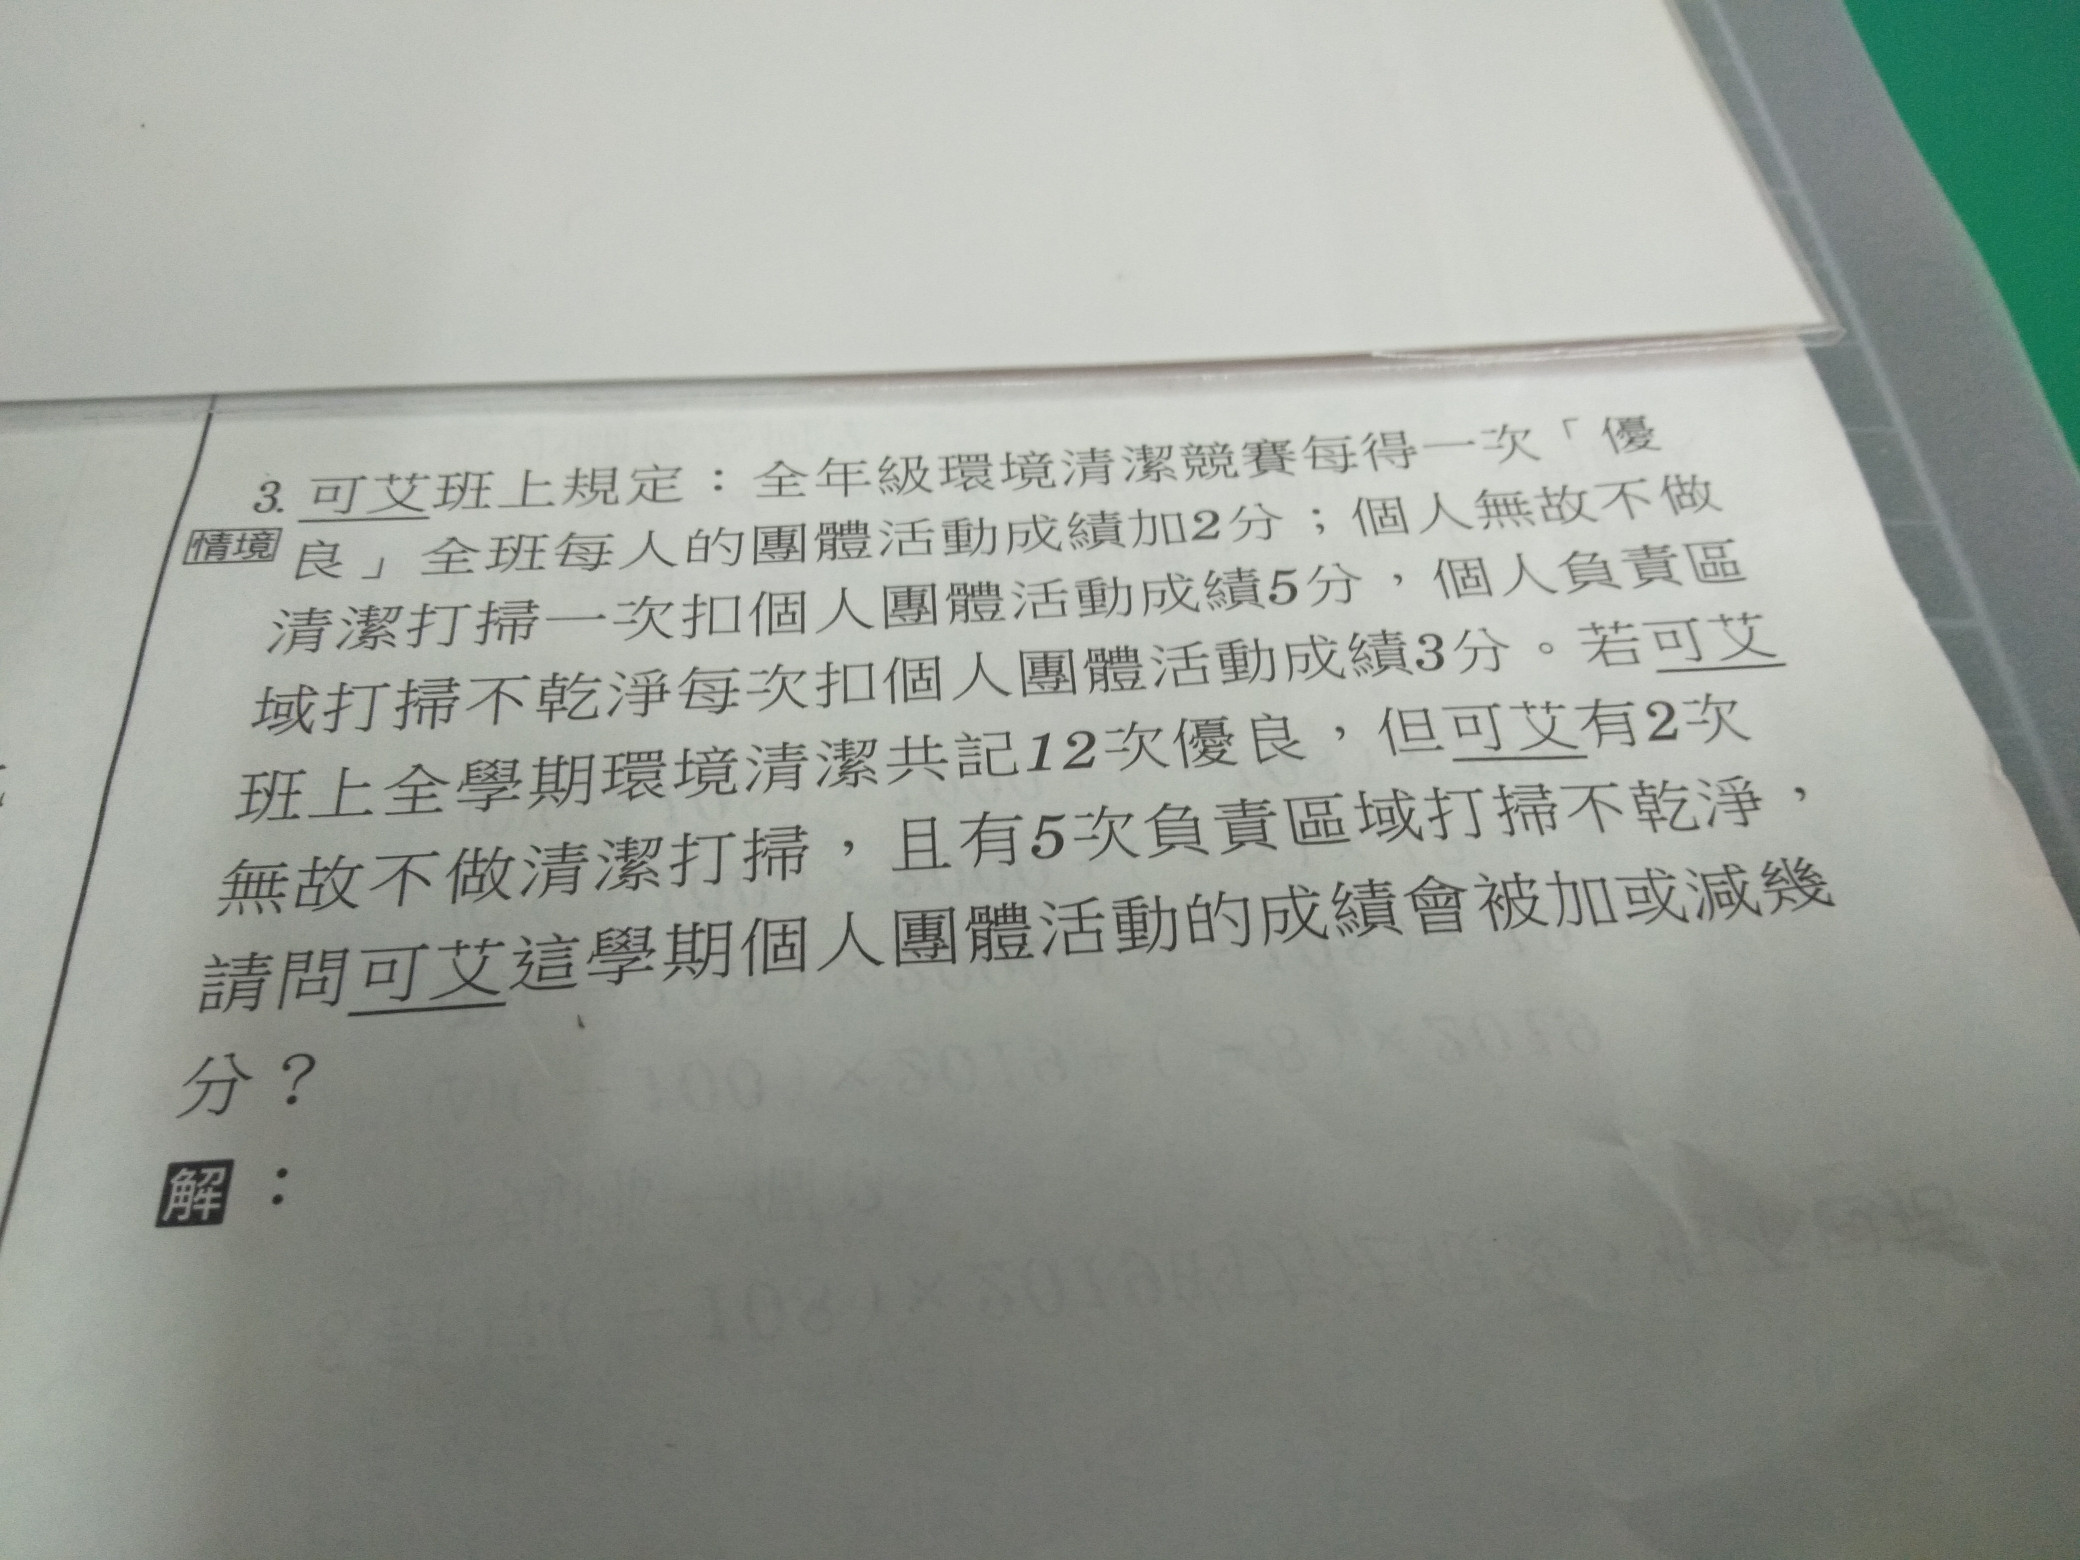 3. 可艾班上規定：全年級環境清潔競賽每得一次「優
情境 良」全班每人的團體活動成績加2分；個人無故不做
清潔打掃一次扣個人團體活動成績5分，個人負責區
域打掃不乾淨每次扣個人團體活動成績3分。若可艾
班上全學期環境清潔共記12次優良，但可艾有2次
無故不做清潔打掃，且有5次負責區域打掃不乾淨，
請問可艾這學期個人團體活動的成績會被加或減幾
分？
解：